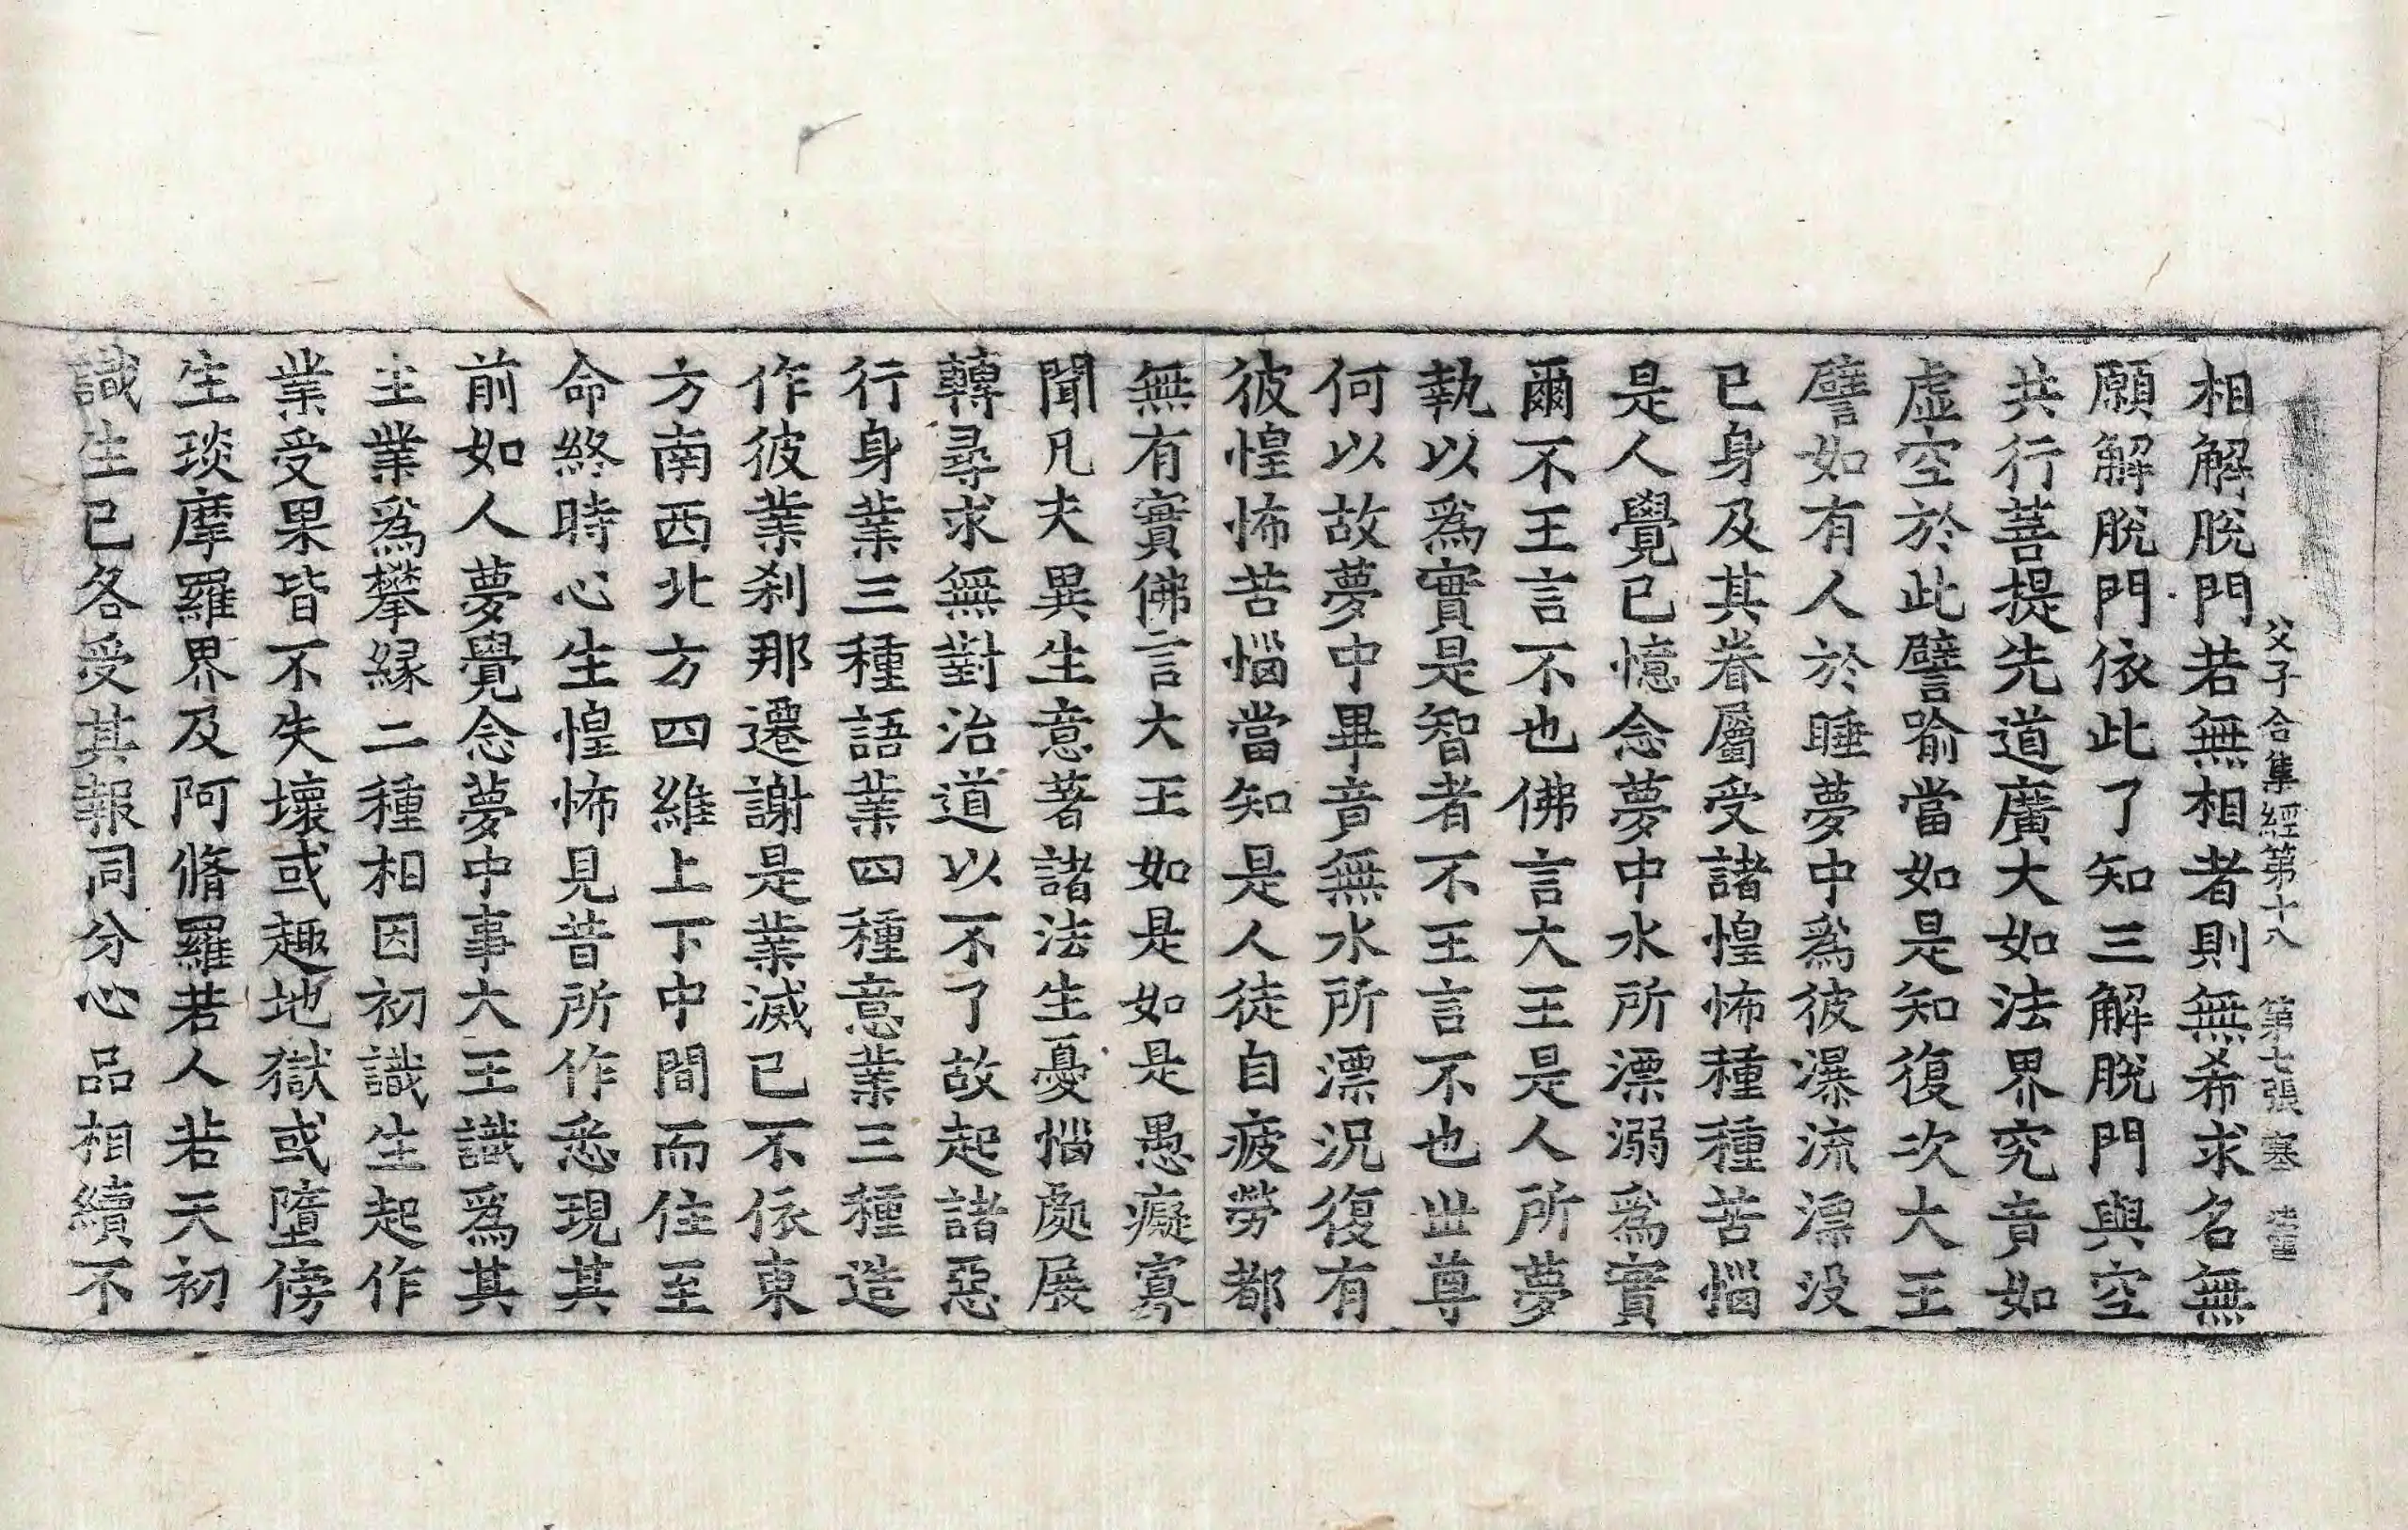 父子合集經第十八 第七張 塞
相解脫門若無相者則無希求名無
願解脫門依此了知三解脫門與空
共行菩提先道廣大如法界究竟如
虛空於此譬喻當如是知復次大王
譬如有人於睡夢中爲彼瀑流漂没
已身及其眷屬受諸惶怖種種苦惱
是人覺已憶念夢中水所漂溺爲實
爾不王言不也佛言大王是人所夢
執以爲實是智者不王言不也世尊
何以故夢中畢竟無水所漂況復有
彼惶怖苦惱當知是人徒自疲勞都
無有實佛言大王如是如是愚癡寡
聞凡夫異生意著諸法生憂惱處展
轉尋求無對治道以不了故起諸惡
行身業三種語業四種意業三種造
作彼業刹那遷謝是業滅已不依東
方南西北方四維上下中間而住至
命終時心生惶怖見昔所作悉現其
前如人夢覺念夢中事大王識爲其
主業爲攀緣二種相因初識生起作
業受果皆不失壞或趣地獄或墮傍
生琰摩羅界及阿脩羅若人若天初
識生已各受其報同分心品相續不